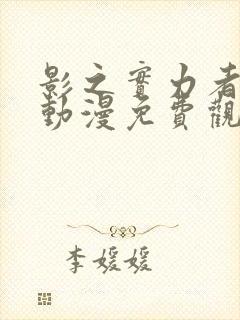 影之實力者
動漫免費觀
李媛媛